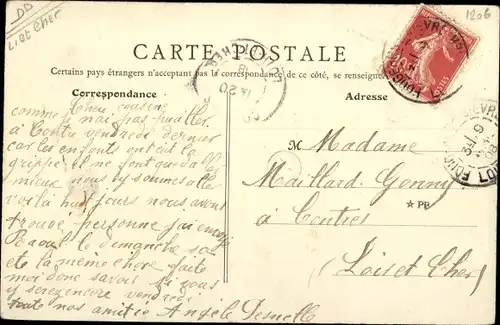 DD
Loir et Cher
1206
CARTE POSTALE
Certains pays étrangers n'acceptant pas la correspondance de ce côté, se renseigner
Correspondance
Adresse
Chere cousine
comme je nai pas pu aller
à Contre vendredi dernier
car les enfants ont ont la
grippe il me font
mieux nous y sommes allé
voila huit jours nous avons
trouvé personne j'ai
Raoul le dimanche sa
ete la même chose faite
moi donc savoir si vous
y serez encore vendredi
toute nos amitié Angèle
M Madame
Maillard Genny
à Contres
Loir et Cher
★ PB